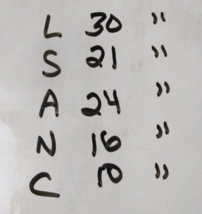 L 30 "
S 21 "
A 24 "
N 16 "
C 10 "